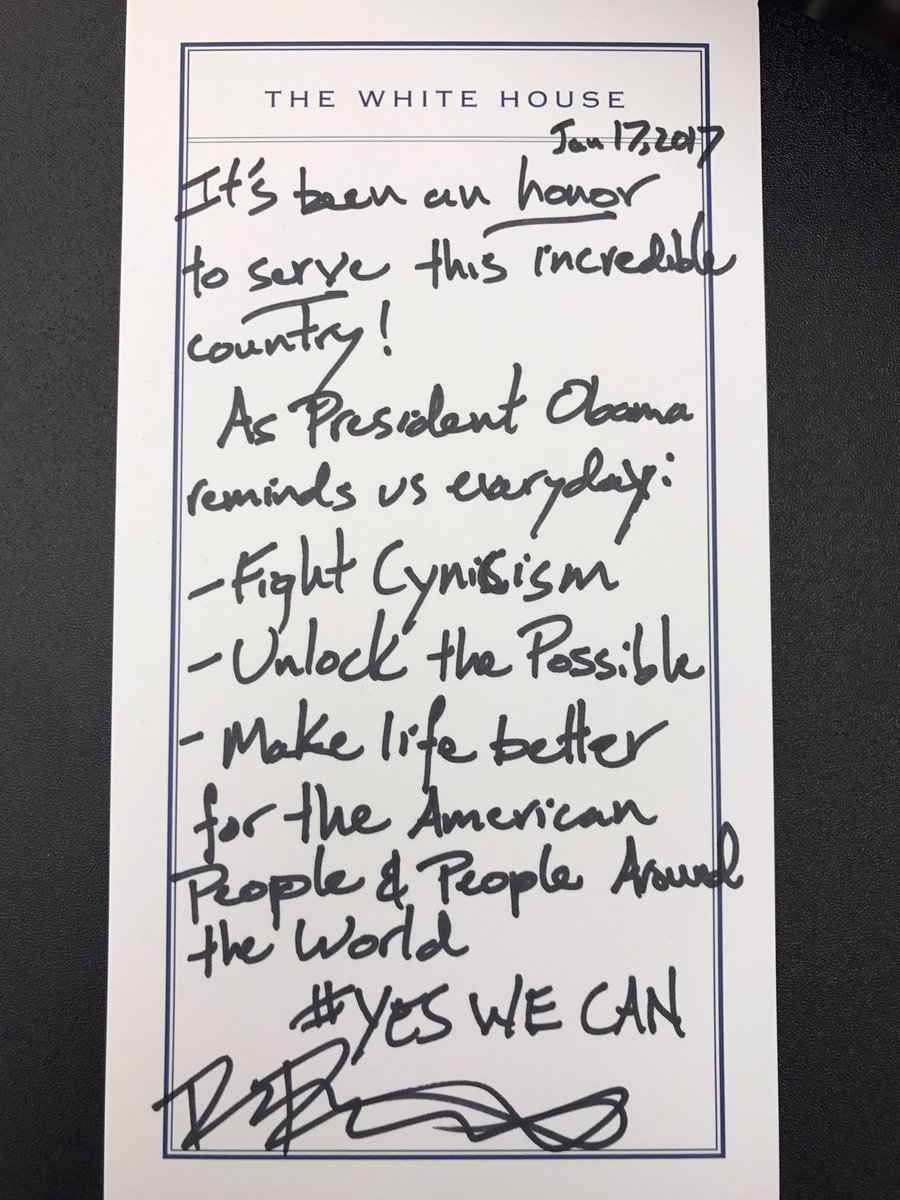 THE WHITE HOUSE
Jan 17, 2017
It's been an honor
to serve this incredible
country!
As President Obama
reminds us everyday:
- Fight Cynicism
- Unlock the Possible
- Make life better
for the American
People & People Around
the World
#YES WE CAN